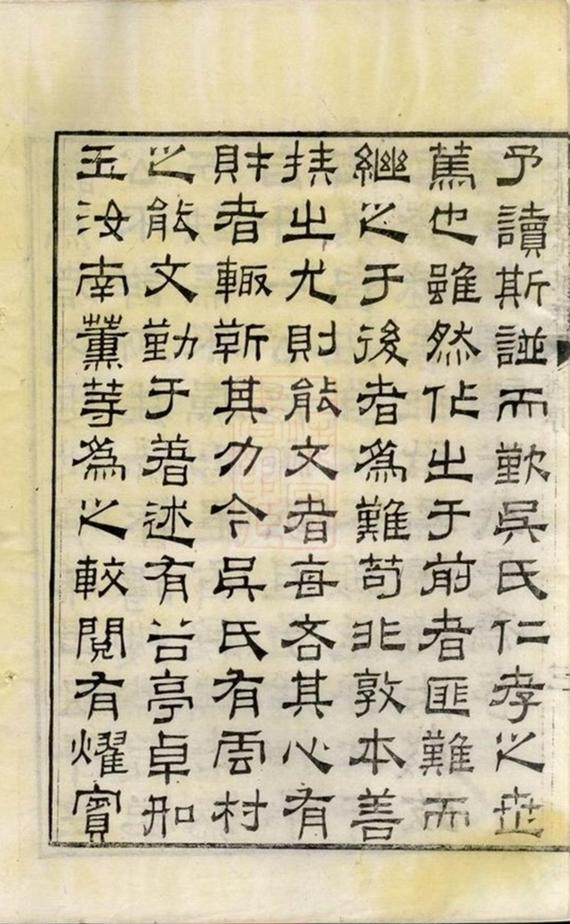 予讀斯譜而歎吳氏仁孝之世
篤也雖然作之于前者匪難而
繼之于後者為難苟非敦本善
族之尤則能文者每吝其心有
財者輙靳其力今吳氏有雲村
之能文勤于著述有谷亭卓如
玉汝南薰等為之較閱有燿賓